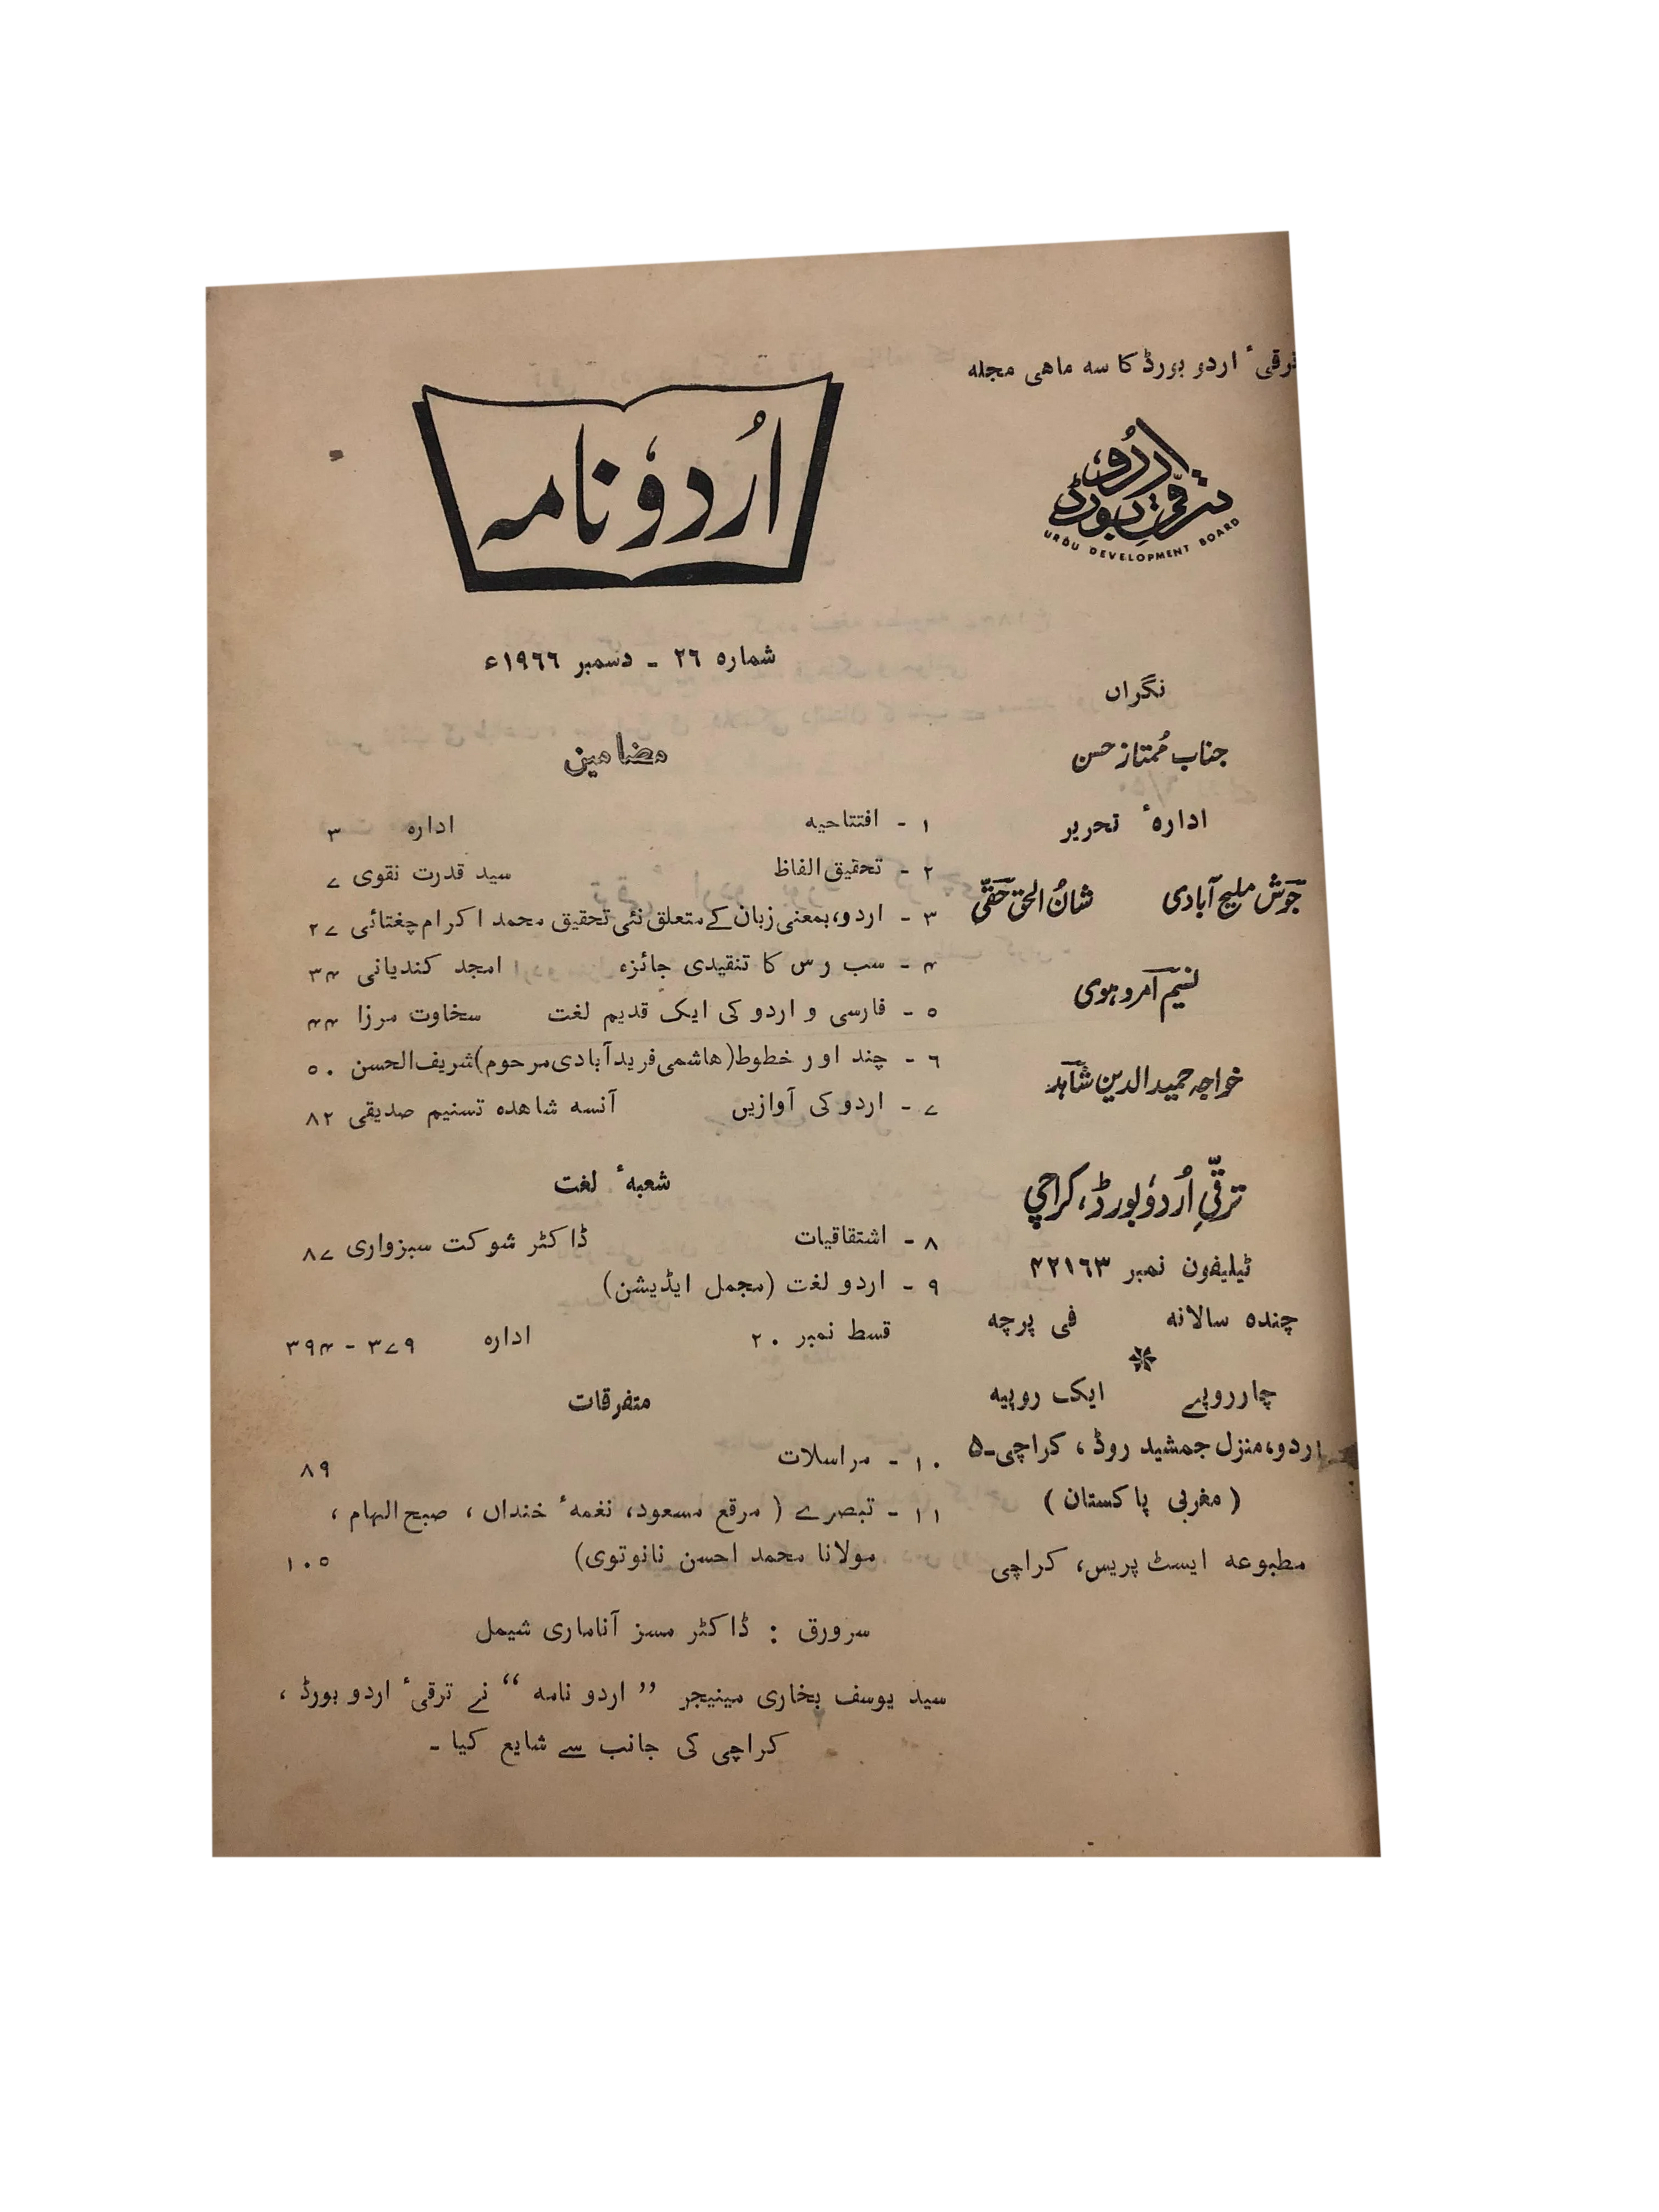 ترقیٔ اردو بورڈ کا سہ ماهی مجلہ
ترقیِ اردو بورڈ
URDU DEVELOPMENT BOARD
نگراں
جناب مُمتاز حسن
ادارۂ تحریر
جوش ملیح آبادی شانُ الحق حقّی
نسیم امروہوی
خواجہ حمید الدین شاہد
ترقّیِ اُردو بورڈ، کراچی
ٹیلیفون نمبر ۴۲۱۶۳
چندہ سالانہ فی پرچہ
چار روپے ایک روپیہ
اردو، منزل جمشید روڈ ، کراچی۔۵
( مغربی پاکستان )
مطبوعہ ایسٹ پریس، کراچی
اُردو نامہ
شمارہ ۲۶ ۔ دسمبر ۱۹۶۶ء
مضامین
۱ ۔ افتتاحیہ ادارہ ۳
۲ ۔ تحقیق الفاظ سید قدرت نقوی ۷
۳ ۔ اردو، بمعنی زبان کے متعلق نئی تحقیق محمد اکرام چغتائی ۲۷
۴ ۔ سب رس کا تنقیدی جائزہ امجد کندیانی ۳۴
۵ ۔ فارسی و اردو کی ایک قدیم لغت سخاوت مرزا ۴۴
۶ ۔ چند اور خطوط (هاشمی فرید آبادی مرحوم) شریف الحسن ۵۰
۷ ۔ اردو کی آوازیں آنسہ شاهدہ تسنیم صدیقی ۸۲
شعبۂ لغت
۸ ۔ اشتقاقیات ڈاکٹر شوکت سبزواری ۸۷
۹ ۔ اردو لغت (مجمل ایڈیشن)
قسط نمبر ۲۰ ادارہ ۳۷۹ - ۳۹۴
متفرقات
۱۰ ۔ مراسلات ۸۹
۱۱ ۔ تبصرے ( مرقع مسعود، نغمۂ خنداں ، صبح الہام ،
مولانا محمد احسن نانوتوی) ۱۰۵
سرورق : ڈاکٹر مسز آناماری شیمل
سید یوسف بخاری مینیجر ” اردو نامہ “ نے ترقیٔ اردو بورڈ ،
کراچی کی جانب سے شایع کیا ۔